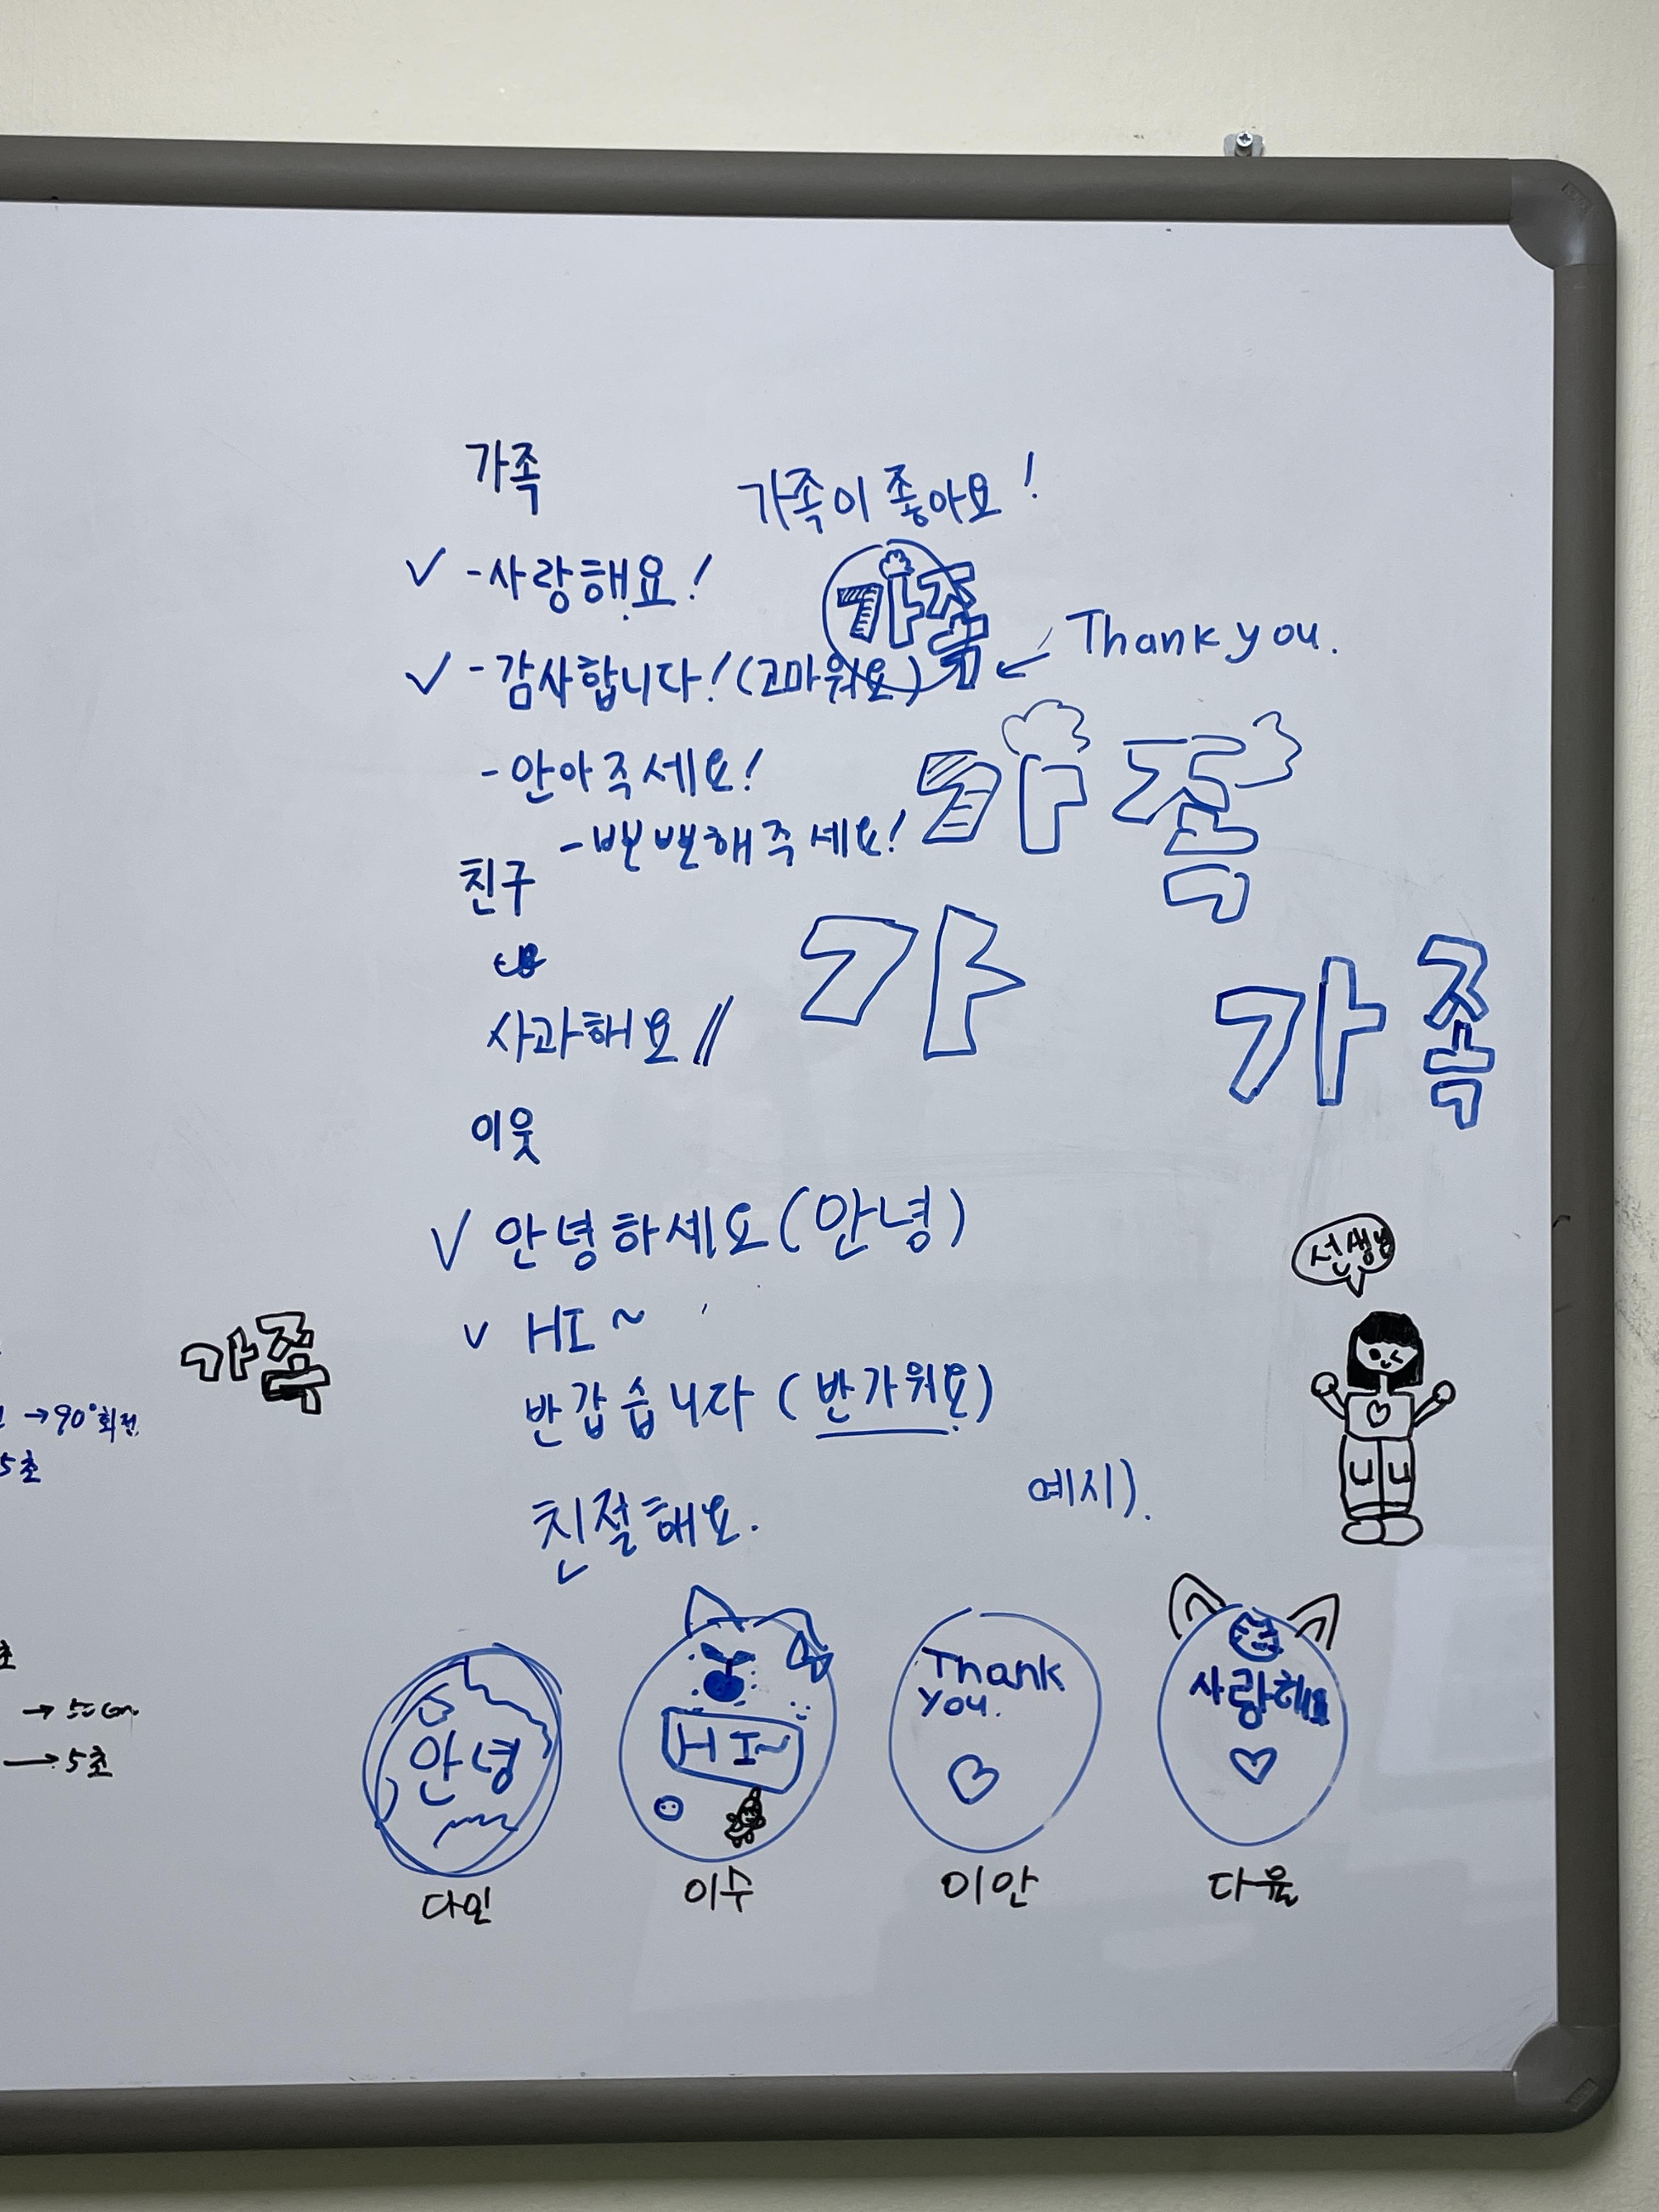 가족
가족이 좋아요!
✓ -사랑해요!
가족
✓ -감사합니다! (고마워요)
← Thank you.
-안아주세요!
가족
-뽀뽀해주세요!
친구
가
사과해요 //
가족
이웃
✓ 안녕하세요 (안녕)
선생님
✓ HI ~
가족
반갑습니다 (반가워요)
→ 90° 회전
5초
예시).
친절해요.
초
→ 5초
안녕
HI~
Thank
you.
사랑해요
다인
이수
이안
다율